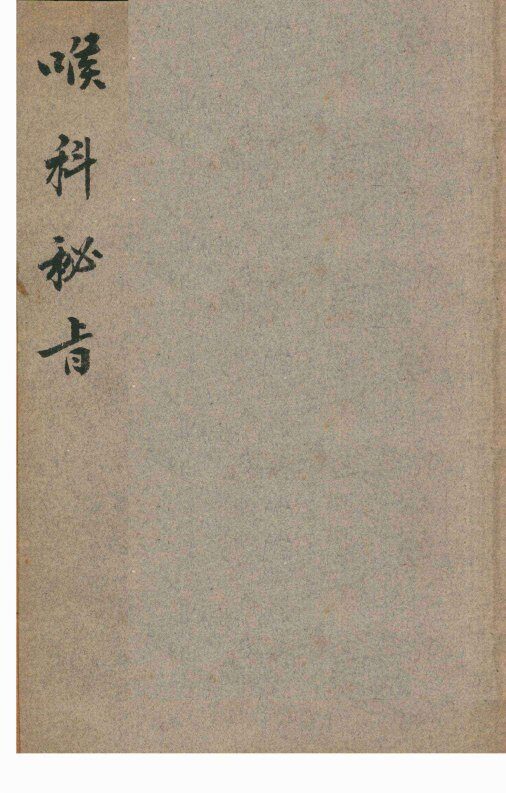 喉科秘旨